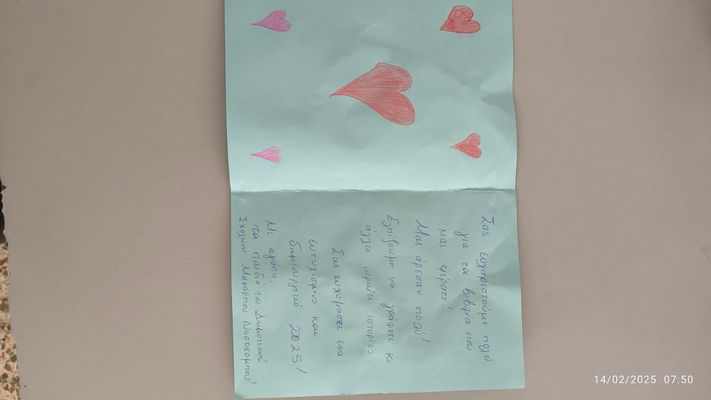 Σας ευχαριστούμε πολύ
για τα βιβλία που
μας φέρατε!
Μας άρεσαν πολύ!
Ελπίζουμε να γράψετε κι
άλλες ωραίες ιστορίες
Σας ευχόμαστε ένα
ευτυχισμένο και
δημιουργικό 2025!
Με αγάπη,
τα παιδιά του Δημοτικού
Σχολείου Μακάρειου Νοσοκομείου!
14/02/2025 07:50